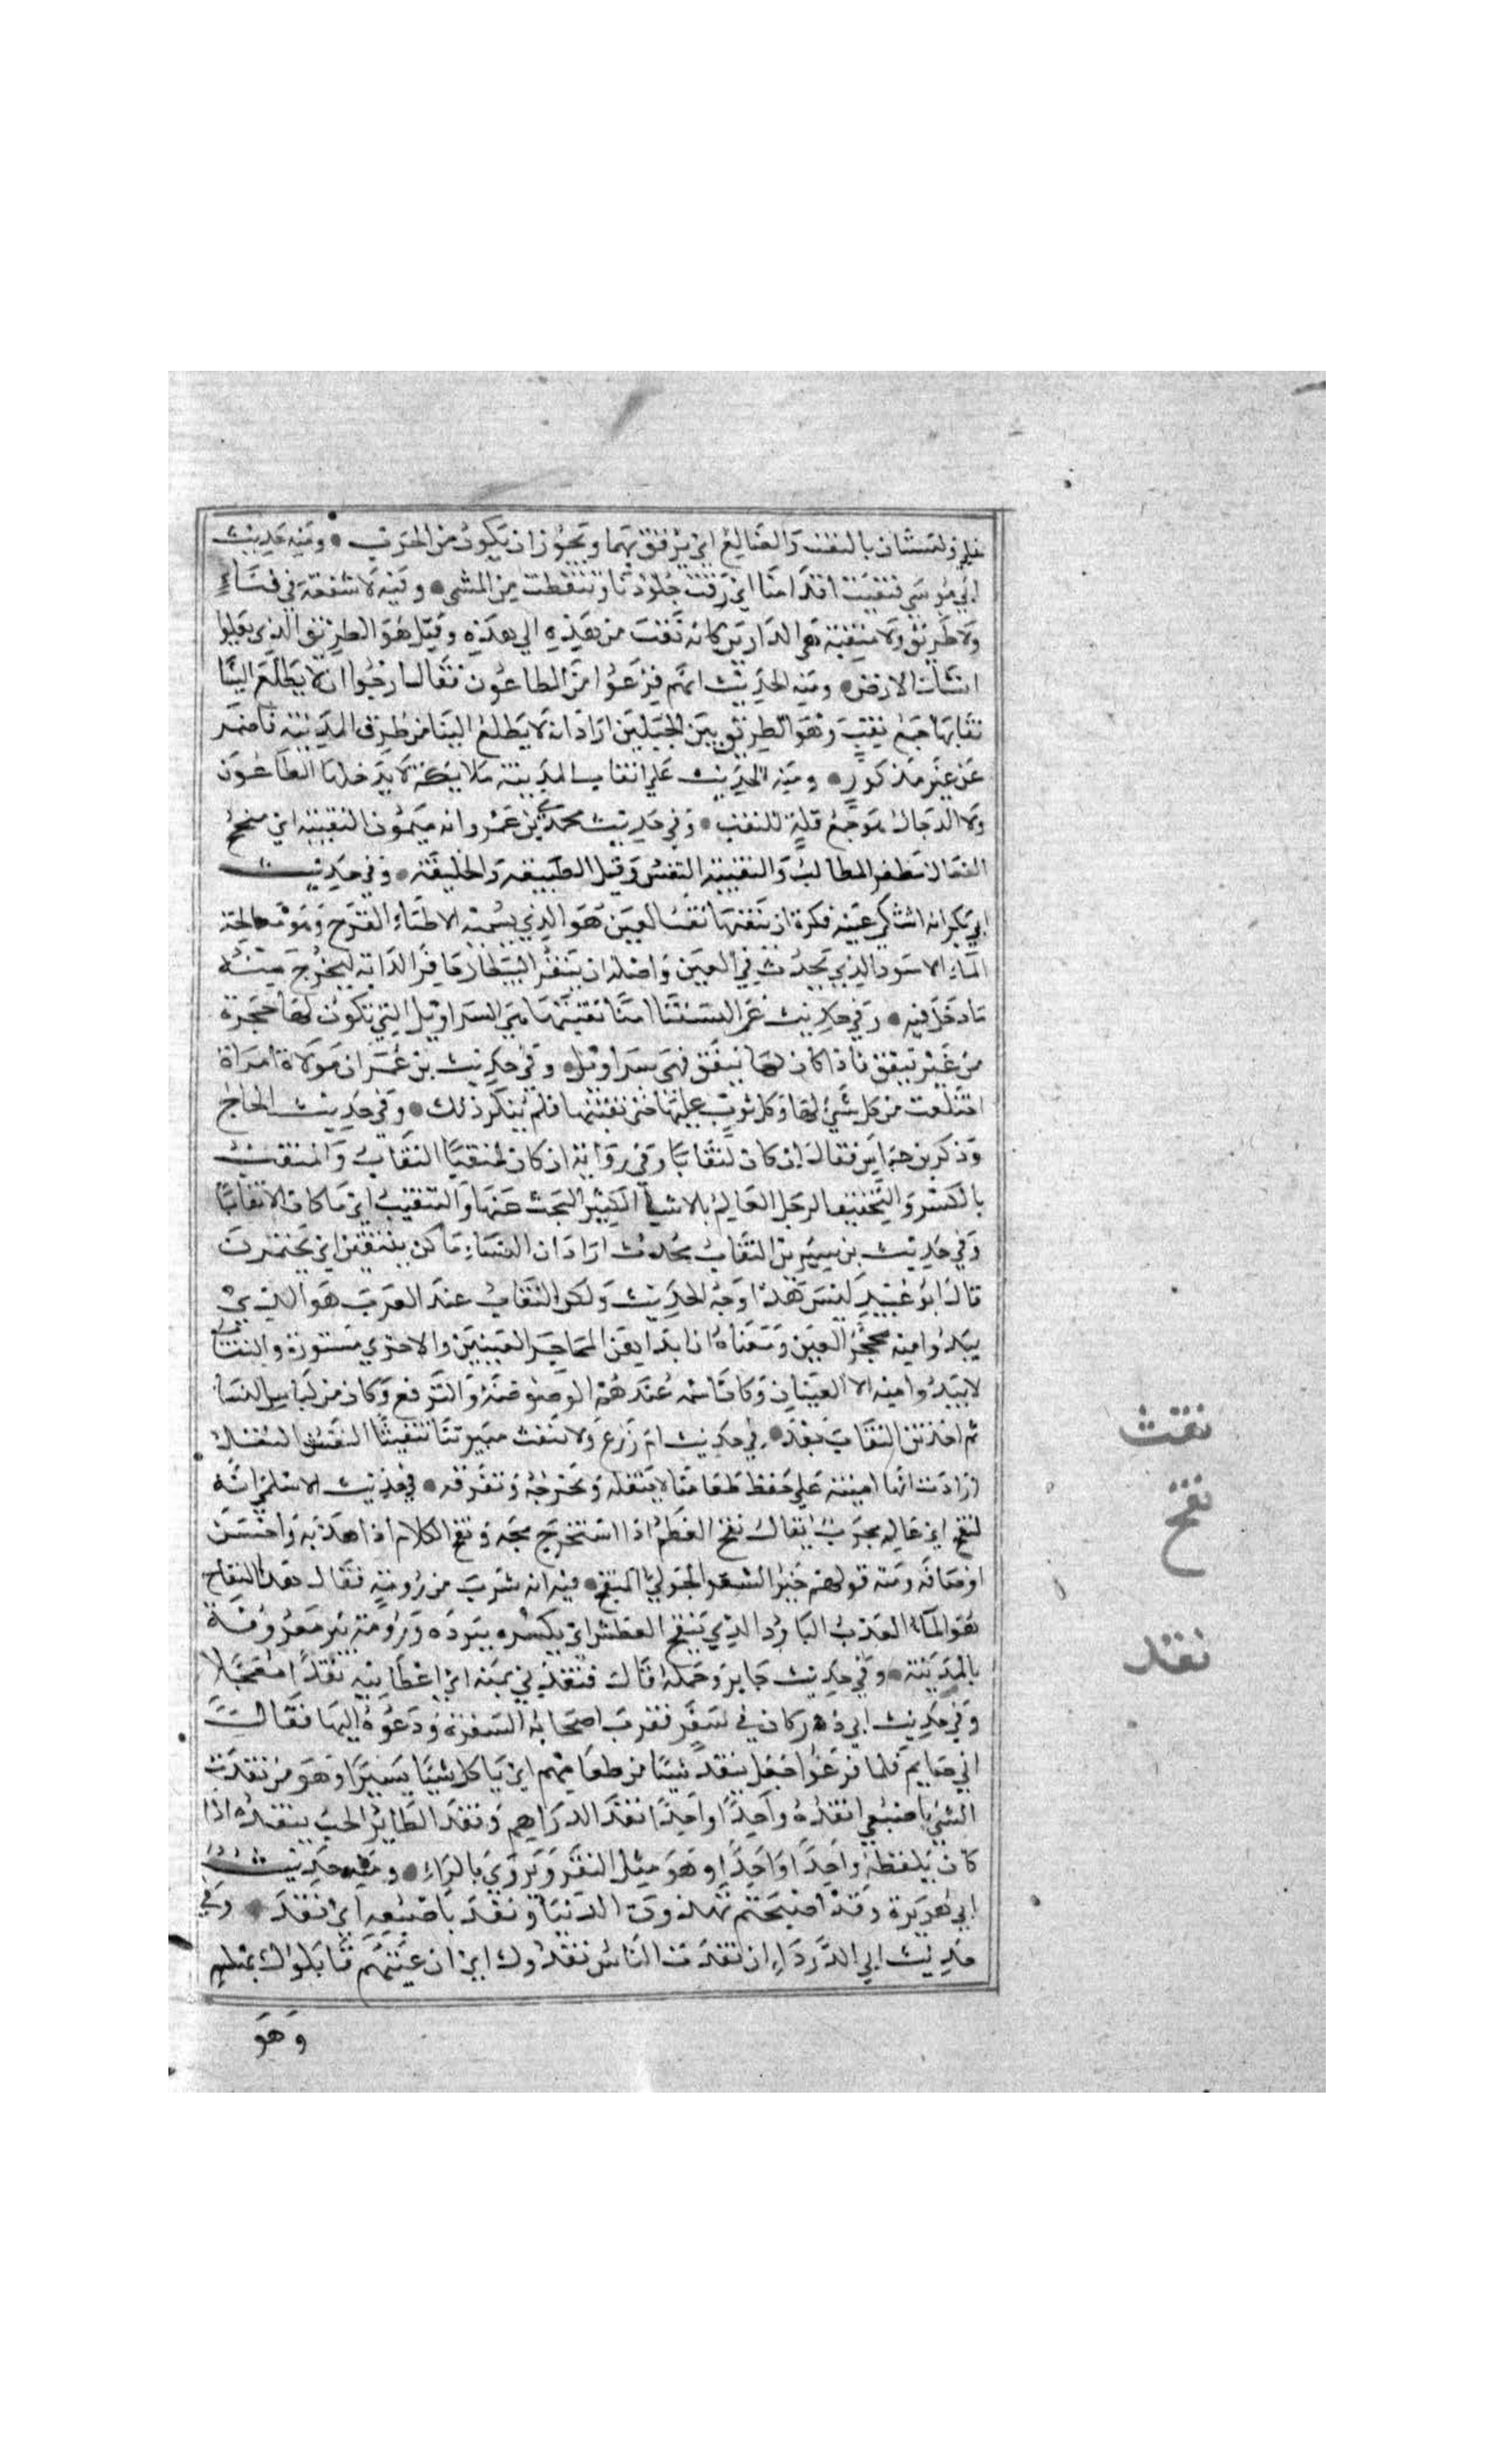 وليستان بالنقب والضالع اي يرفق بهما ويجوز ان يكون من الجرب ومنه حديث
ابي موسى فنقبت اقدامنا اي رقت جلودنا وتنفطت من المشي وفيه لا شفعة في فناء
ولا طريق ولا منقبة هي الدارين كانه نقب من هذه الى هذه وقيل هو الطريق الذي يعلوا
انشاز الارض ومنه الحديث انهم فزعوا من الطاعون فقال ارجوا ان لا يطلع الينا
نقابها جمع نقب وهو الطريق بين الجبلين اراد انه لا يطلع الينا من طرق المدينة فاضمر
عن غير مذكور ومنه الحديث على انقاب المدينة ملايكة لا يدخلها الطاعون
ولا الدجال هو جمع قلة للنقب وفي حديث مجدي بن عمرو انه ميمون النقيبة اي منجح
الفعال مظفر المطالب والنقيبة النفس وقيل الطبيعة والخليقة وفي حديث
ابي بكر انه اشتكى عينه فكره ان ينقبها نقب العين هو الذي يسميه الاطباء القدح وهو معالجة
الماء الاسود الذي يحدث في العين واصله ان ينقر البيطار حافر الدابة ليخرج منه
ما دخل فيه وفي حديث عمر البستنا امنا نقبتها هي السراويل التي تكون لها حجزة
من غير نيفق فاذا كان لها نيفق فهي سراويل وفي حديث بن عمر ان مولاة امراة
اختلعت من كل شيء لها وكل ثوب عليها حتى نقبتها فلم ينكر ذلك وفي حديث الحجاج
وذكر بن عباس فقال ان كان لنقابا وفي رواية ان كان لمنقبا النقاب والمنقب
بالكسر والتخفيف الرجل العالم بالاشياء الكثير البحث عنها والتنقيب اي ما كان الا نقابا
وفي حديث بن سيرين النقاب محدث اراد ان النساء ما كن ينتقبن اي يختمرن
قال ابو عبيد ليس هذا وجه الحديث ولكن النقاب عند العرب هو الذي
يبدوا منه محجر العين ومعناه ان ابداهن المحاجر العينين والاخرى مستورة والنقاب
لا يبدوا منه الا العينان وكان اسمه عندهم الوصوصة والبرقع وكان من لباس النسا
ثم احدثن النقاب بعد في حديث ام زرع ولا تنقث ميرتنا تنقيثا النقث النقل
ارادت انها امينة على حفظ طعامنا لا تنقله وتخرجه وتفرقه في حديث الاسلمي انه
لنقح اي عالم مجرب يقال نقح العظم اذا استخرج مخه ونقح الكلام اذا هذبه واحسن
اوصافه ومنه قولهم خير الشعر الحولي المنقح فيه انه شرب من رومة فقال هذا النقاخ
هو الماء العذب البارد الذي ينقخ العطش اي يكسره ببرده ورومة بئر معروفة
بالمدينة وفي حديث جابر وجمله قال فنقدني ثمنه اي اعطانيه نقدا معجلا
وفي حديث ابي ذر كان في سفر فقرب اصحابه السفرة ودعوه اليها فقال
اني صايم فلما فرغوا جعل ينقد شيئا من طعامهم اي ياكل شيئا يسيرا وهو من نقدت
الشيء باصبعي انقده واحدا واحدا نقد الدراهم ونقد الطائر الحب ينقده اذا
كان يلقطه واحدا واحدا وهو مثل النقر ويروى بالراء ومنه حديث
ابي هريرة وقد اصبحتم تهذرون الدنيا ونقد باصبعه اي نقد وفي
حديث ابي الدرداء ان نقدت الناس نقدوك اي ان عبتهم قابلوك بمثله
وهو
نقث
نقخ
نقد